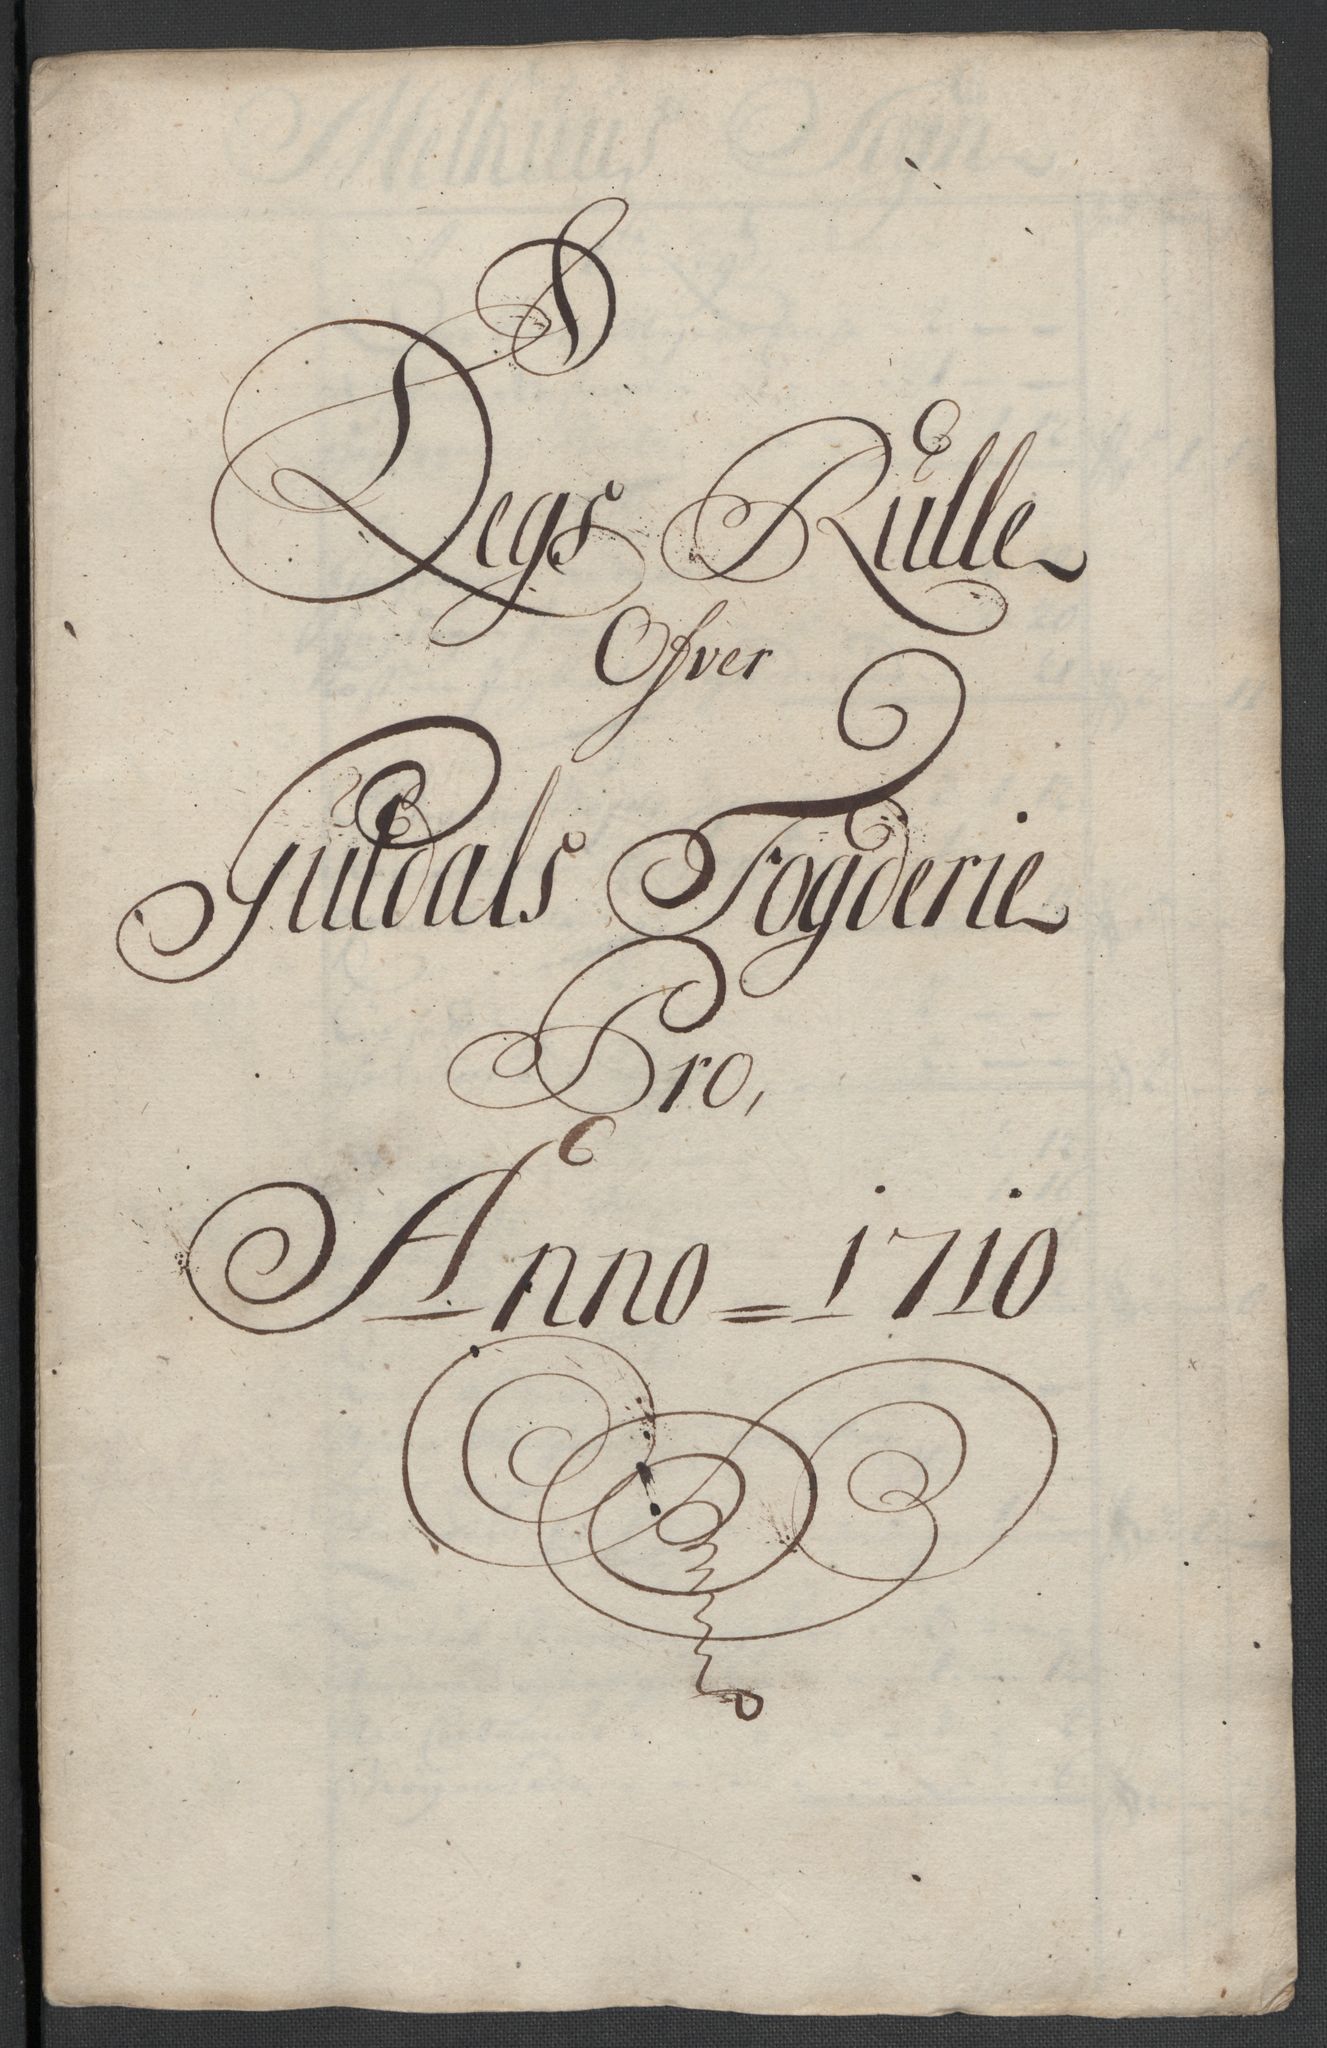 Qegs Rulle
Ofver
Guldals Fogderie
Pro,
Anno = 1710